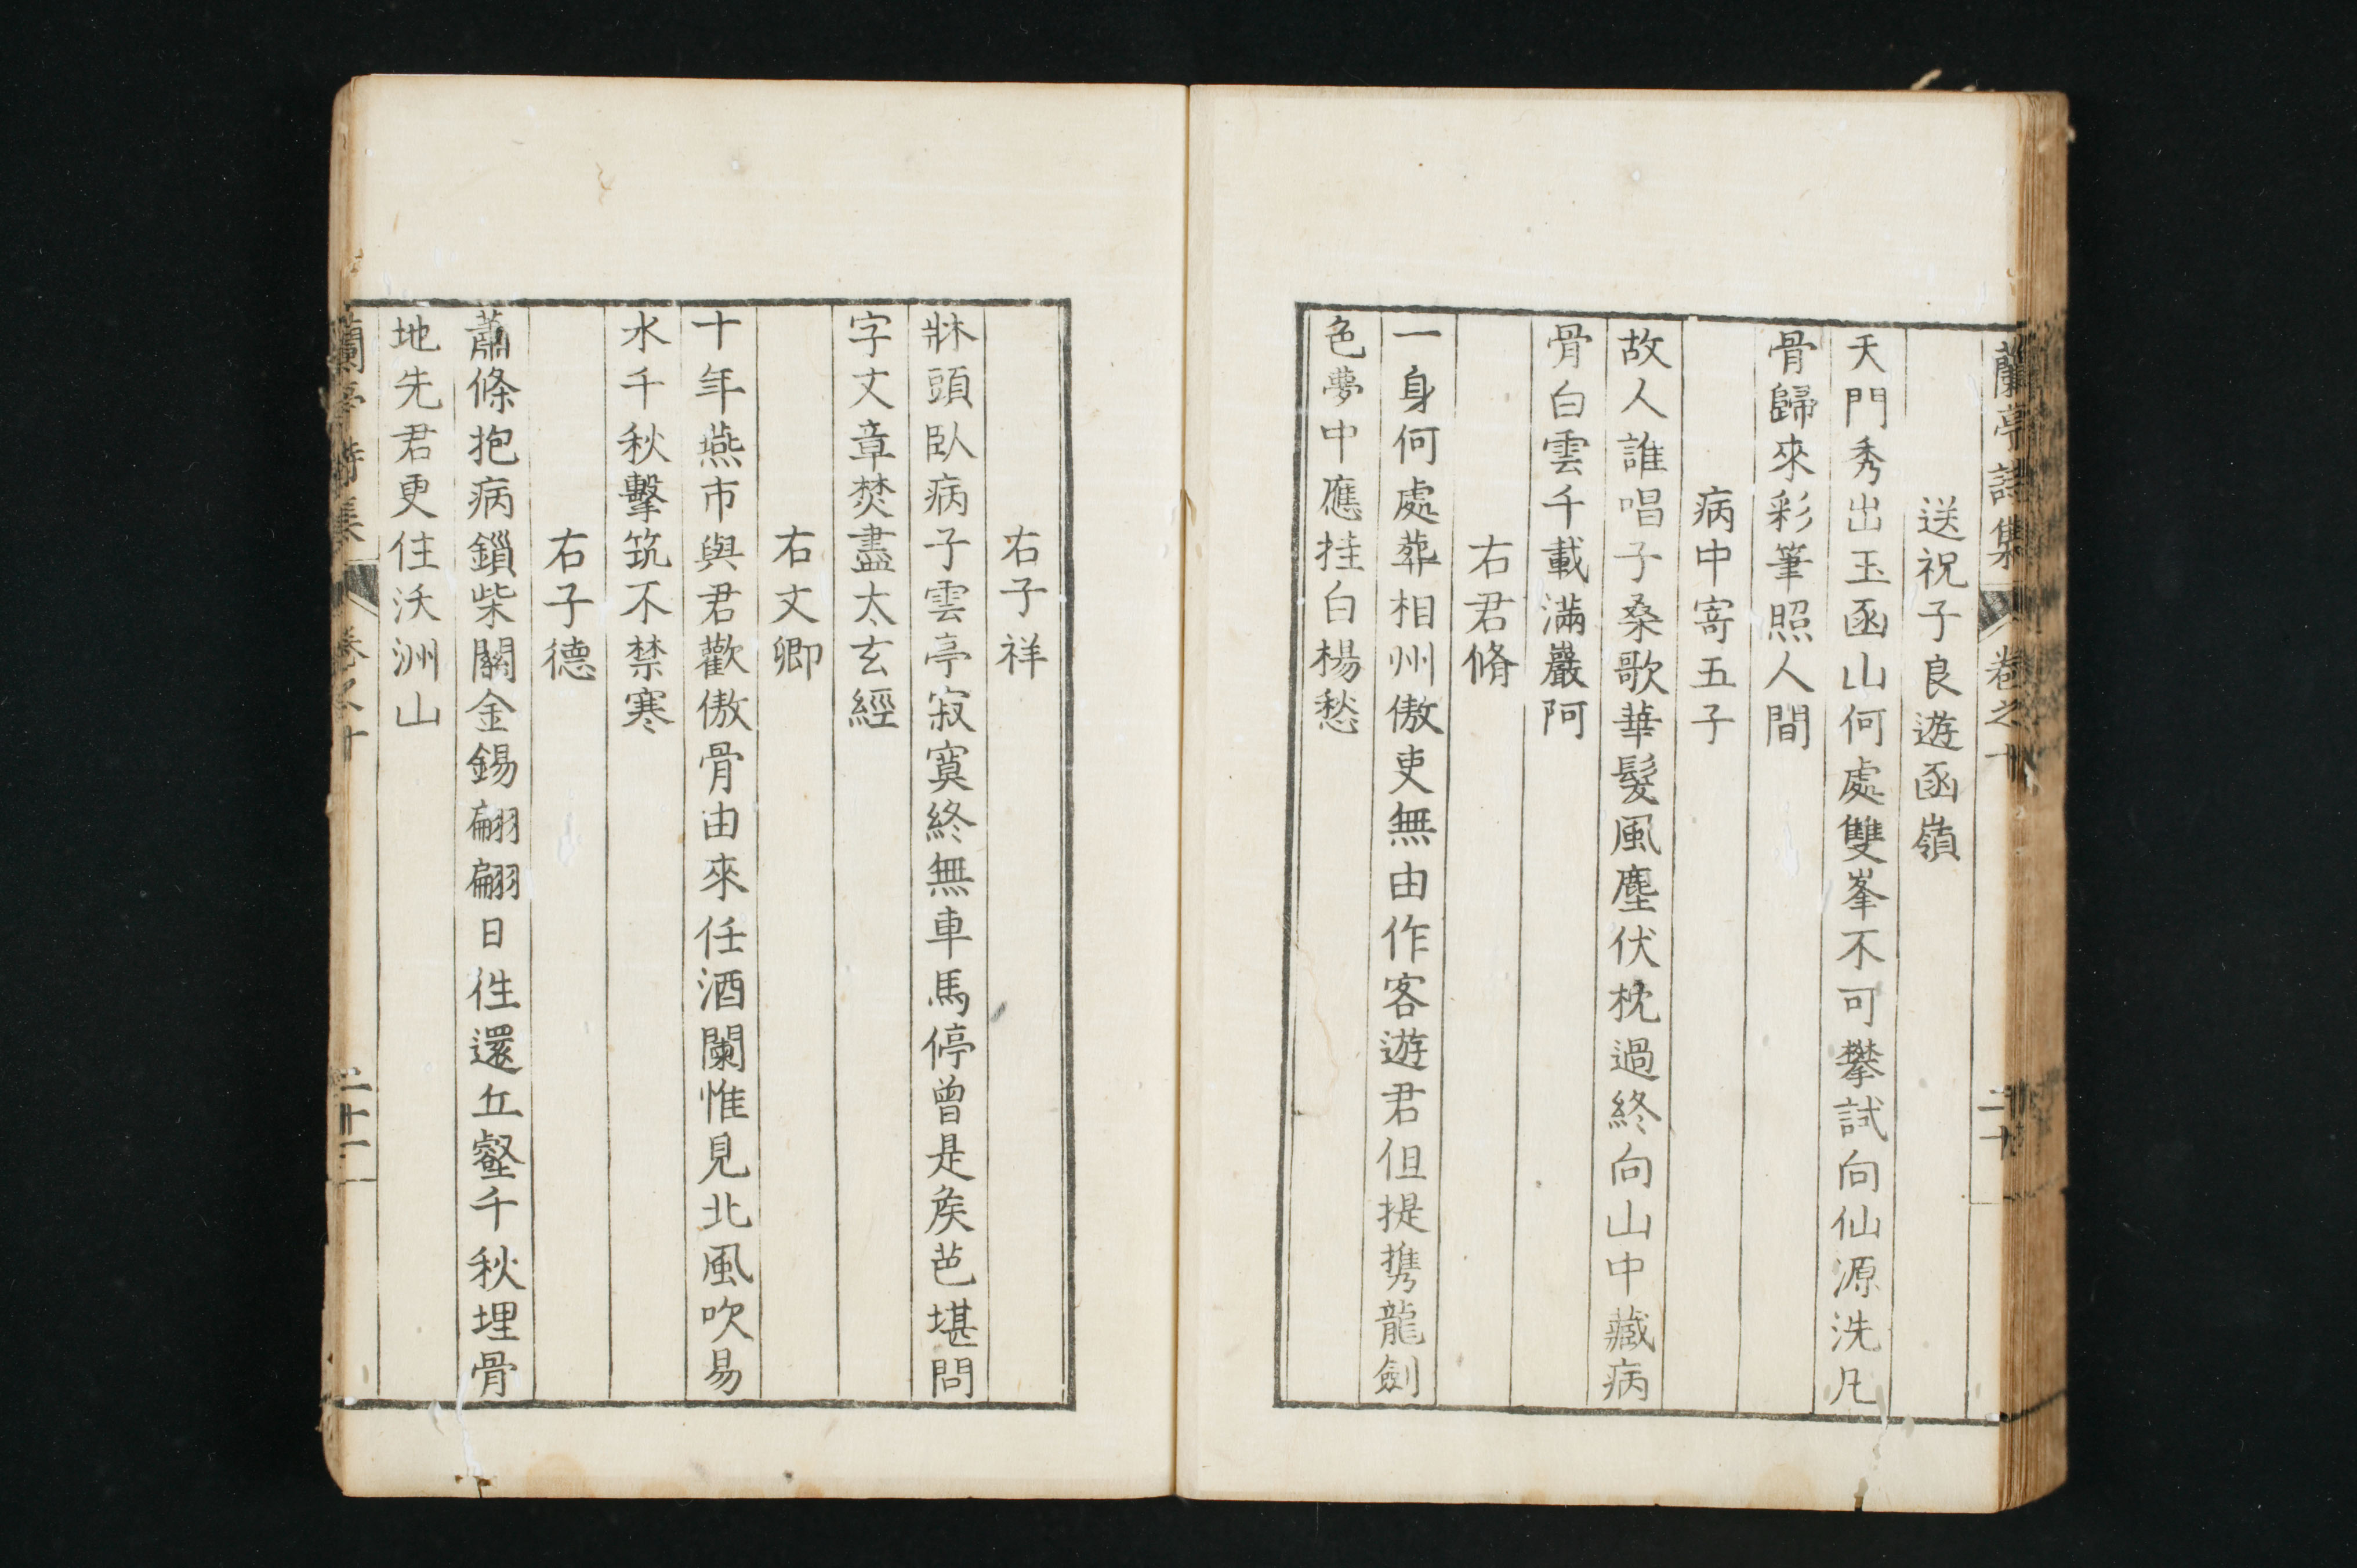 蘭亭詩集 卷之十 二十
送祝子良遊函嶺
天門秀出玉函山何處雙峯不可攀試向仙源洗凡
骨歸來彩筆照人間
病中寄五子
故人誰唱子桑歌華髮風塵伏枕過終向山中藏病
骨白雲千載滿巖阿
右君脩
一身何處葬相州傲吏無由作客遊君但提携龍劍
色夢中應挂白楊愁
右子祥
牀頭臥病子雲亭寂寞終無車馬停曾是矦芭堪問
字文章焚盡太玄經
右文卿
十年燕市與君歡傲骨由來任酒闌惟見北風吹易
水千秋擊筑不禁寒
右子德
蕭條抱病鎖柴關金錫翩翩日徃還丘壑千秋埋骨
地先君更住沃洲山
蘭亭詩集 卷之十 二十一